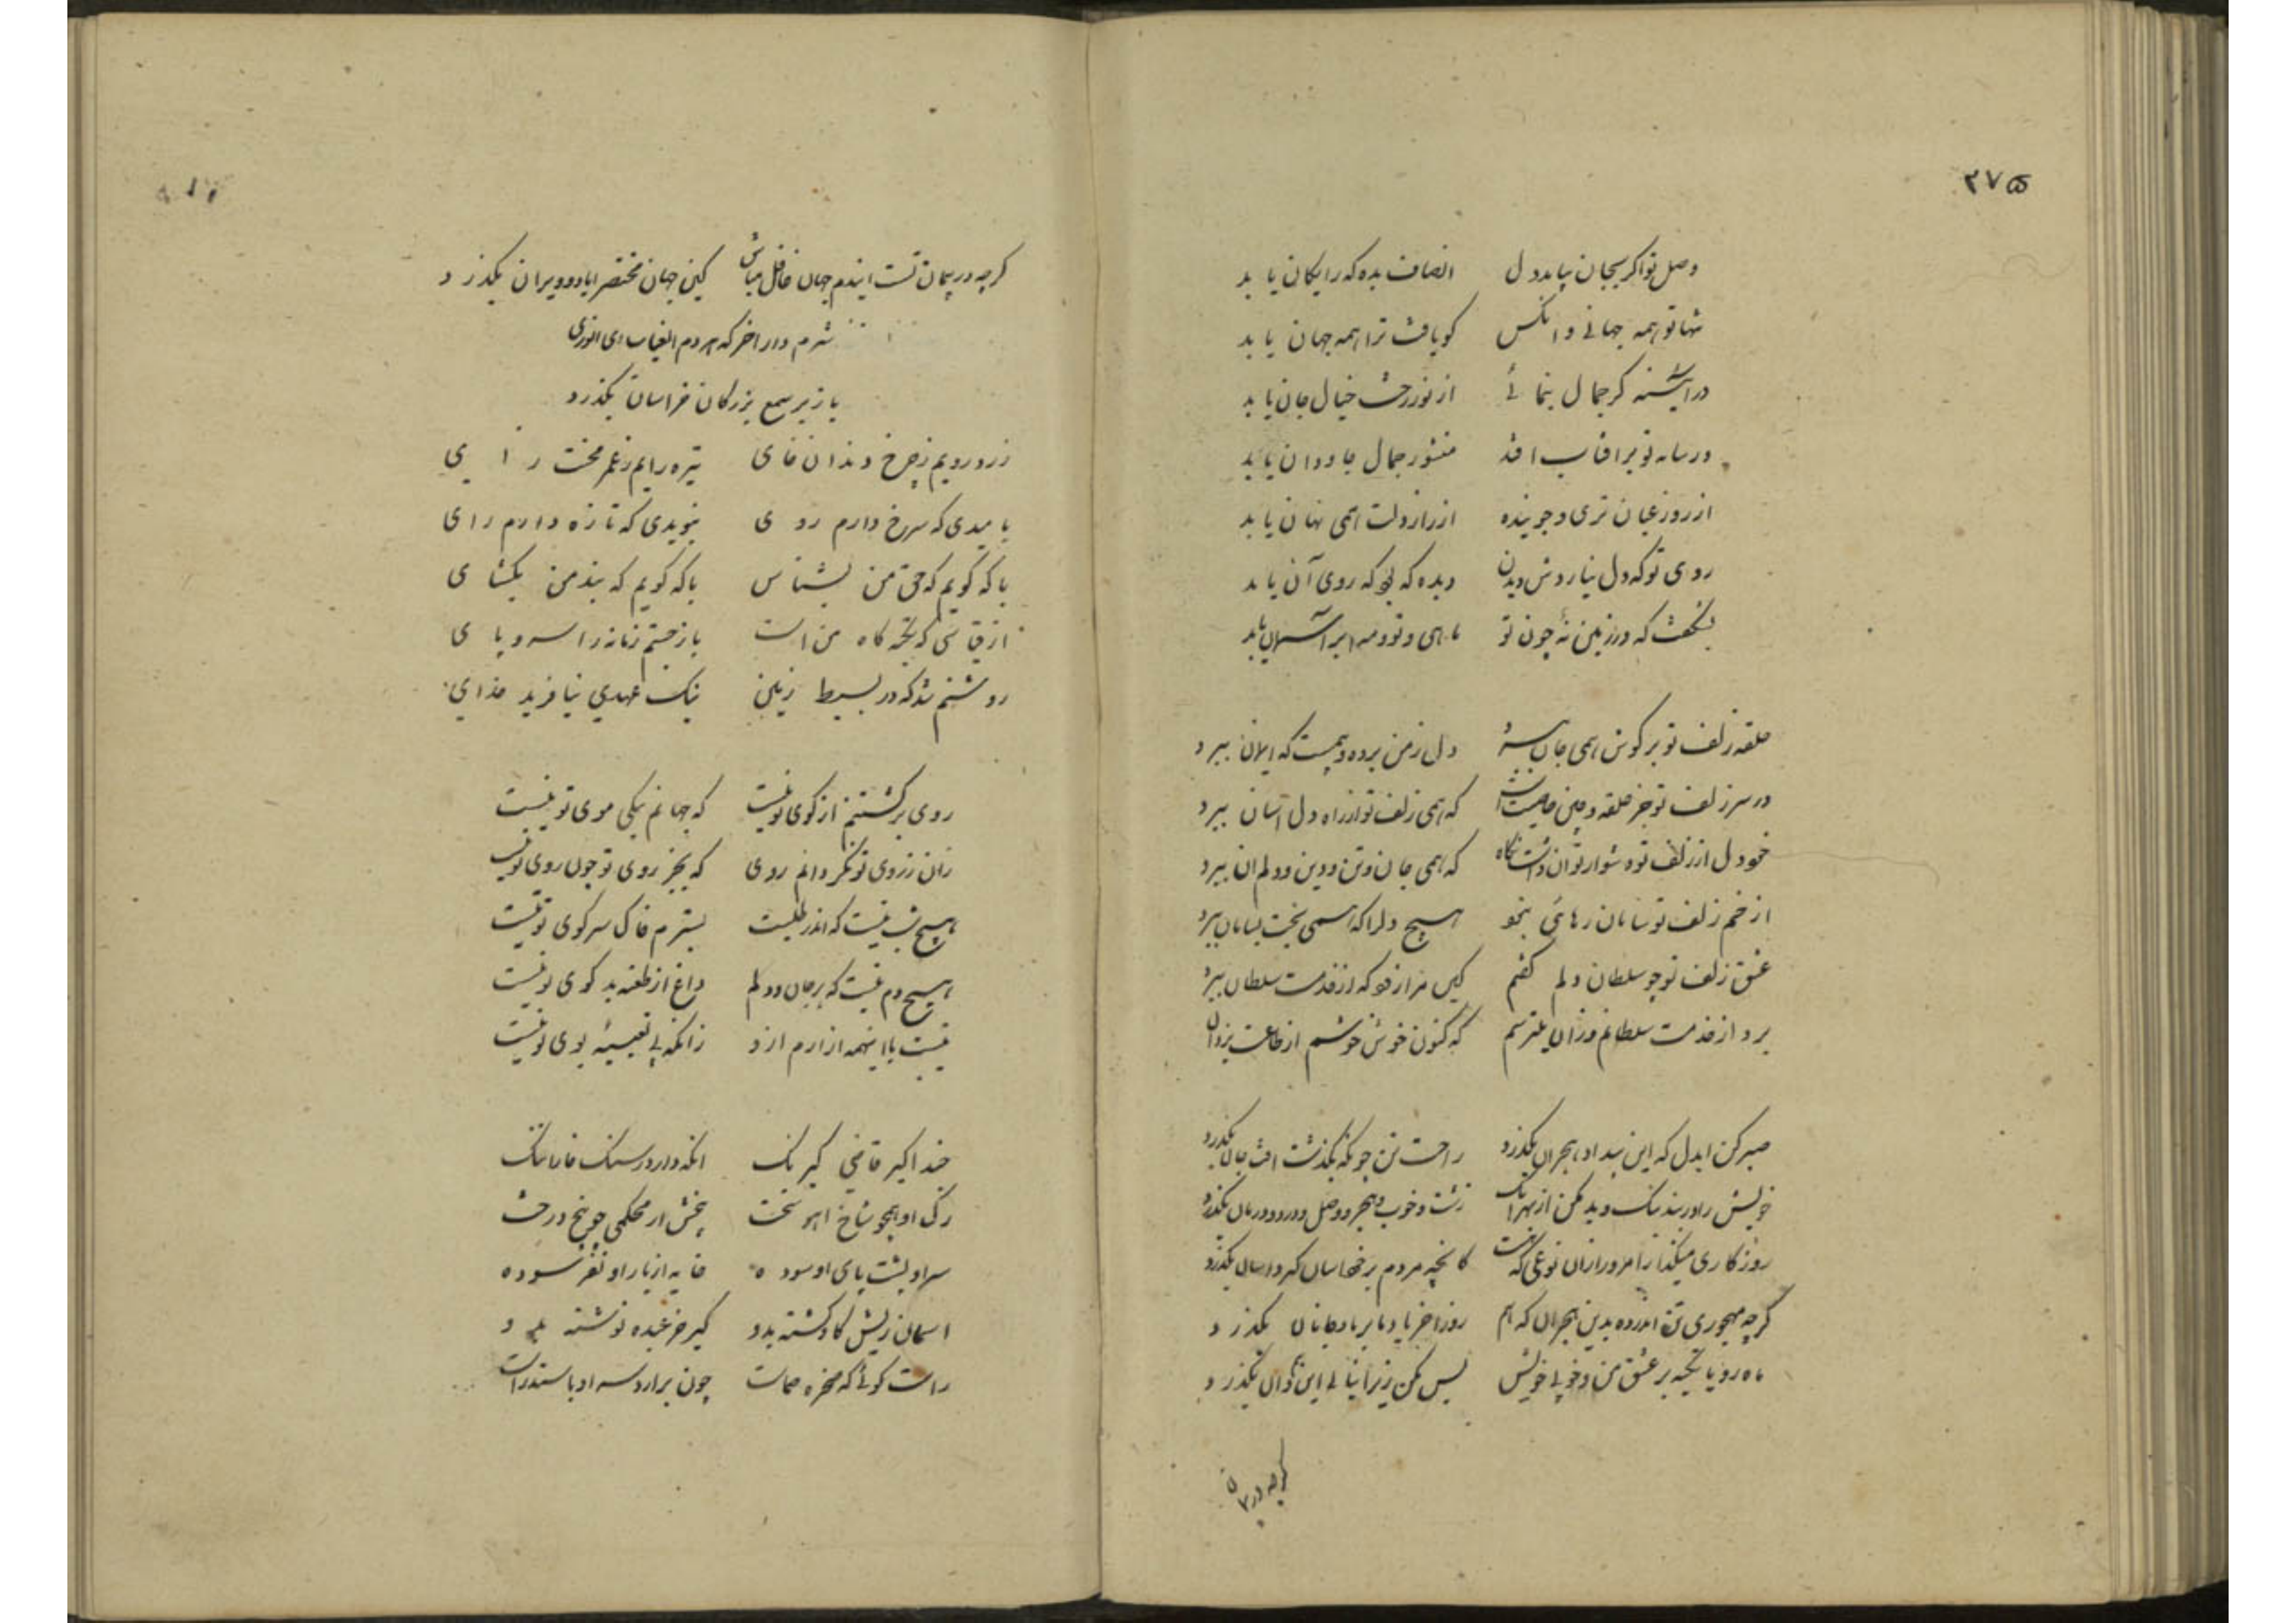 ۳۷۵
وصل تو اکر بجان بیابد دل انصاف بده که رایکان یابد
تنها تو همه جهانی و انکس کو یافت ترا همه جهان یابد
در آینه کر جمال بنمائی از نور رخت خیال جان یابد
ور سایه تو بر افتاب افتد منشور جمال جاودان یابد
از روز عیان تری و جوینده از راز دلت همی نهان یابد
روی تو که دل نیاردش دیدن دیده که بی که روی آن یابد
بنکفت که در زمین نه چون تو ماهی و تو و مه ابر آسمان یابد
حلقه زلف تو بر کوش همی جان ببرد دل ز من برده و همیست که ایمان ببرد
در سر زلف تو جز حلقه و چین خاصیت است که همی زلف تو از راه دل آسان ببرد
خود دل از زلف تو دشوار توان داشت نکاه که همی جان و تن و دین و دلم ان ببرد
از خم زلف تو سامان رهائی نجو هیچ دلرا که همی بسامان ببرد
عشق زلف تو چو سلطان دلم کفتم کین مرا که از خدمت سلطان ببرد
برد از خدمت سلطانم وزان میترسم که کنون خوش خوشم از طاعت یزدان
صبر کن ایدل که این بیداد هجران بکذرد راحت تن چونکه بکذشت افت جان بکذرد
خویش را در بند نیک و بد مکن از بهر انک زشت و خوب و هجر و وصل و درد و درمان بکذرد
روزکاری میکذار امروز ازان نوعی که هست کانچه مردم بر خود اسان کیرد اسان بکذرد
کرچه مهجوری تن اندر ده بدین هجران که هم روز اخر یا دنا بر بادجانان بکذرد
ماه رویا تکیه بر عشق من و خوبی خویش بس مکن زیرا بنا لی این توان بکذرد
کرچه در پیمان
کرچه در پیمان تست ایندم جهان غافل مباش کین جهان مختصر اباد و ویران بکذرد
شرم دار اخر که هر دم الغیاث ای انوری
باز بر سمع بزرکان خراسان بکذرد
زرد رویم ز چرخ دندان خای تیره رایم ز عمر محنت زای
بامیدی که سرخ دارم روی بنویدی که تازه دارم رای
با که کویم که حق من بشناس با که کویم که بند من بکشای
از قیاسی که تکیه کاه من است باز جستم زمانه را سر و پای
روشنم شد که در بسیط زمین نیک عهدی نیافرید خدای
روی برکشتنم از کوی تو نیست که جهانم بیکی موی تو نیست
زان ز روی تو نکردانم روی که بجز روی تو چون روی تو نیست
هیچ شب نیست که اندر طلبت بسترم خاک سر کوی تو نیست
هیچ دم نیست که بر جان و دلم داغ از طعنه بدکوی تو نیست
نیست با اینهمه ازارم ازو زانکه بی تعبیه بوی تو نیست
حبذا کیر قاضی کیرنک انکه دارد ز سنک خارا ننک
رک او همچو شاخ اهو سخت بیخش از محکمی چو بیخ درخت
سر او پشت پای او سوده خایه از بار او نفرسوده
اسمان زیش کا و کشته بدو کیر خر عبده نوشته بدو
راست کوئی که مخره صماست چون برارد سر او با ستدراست